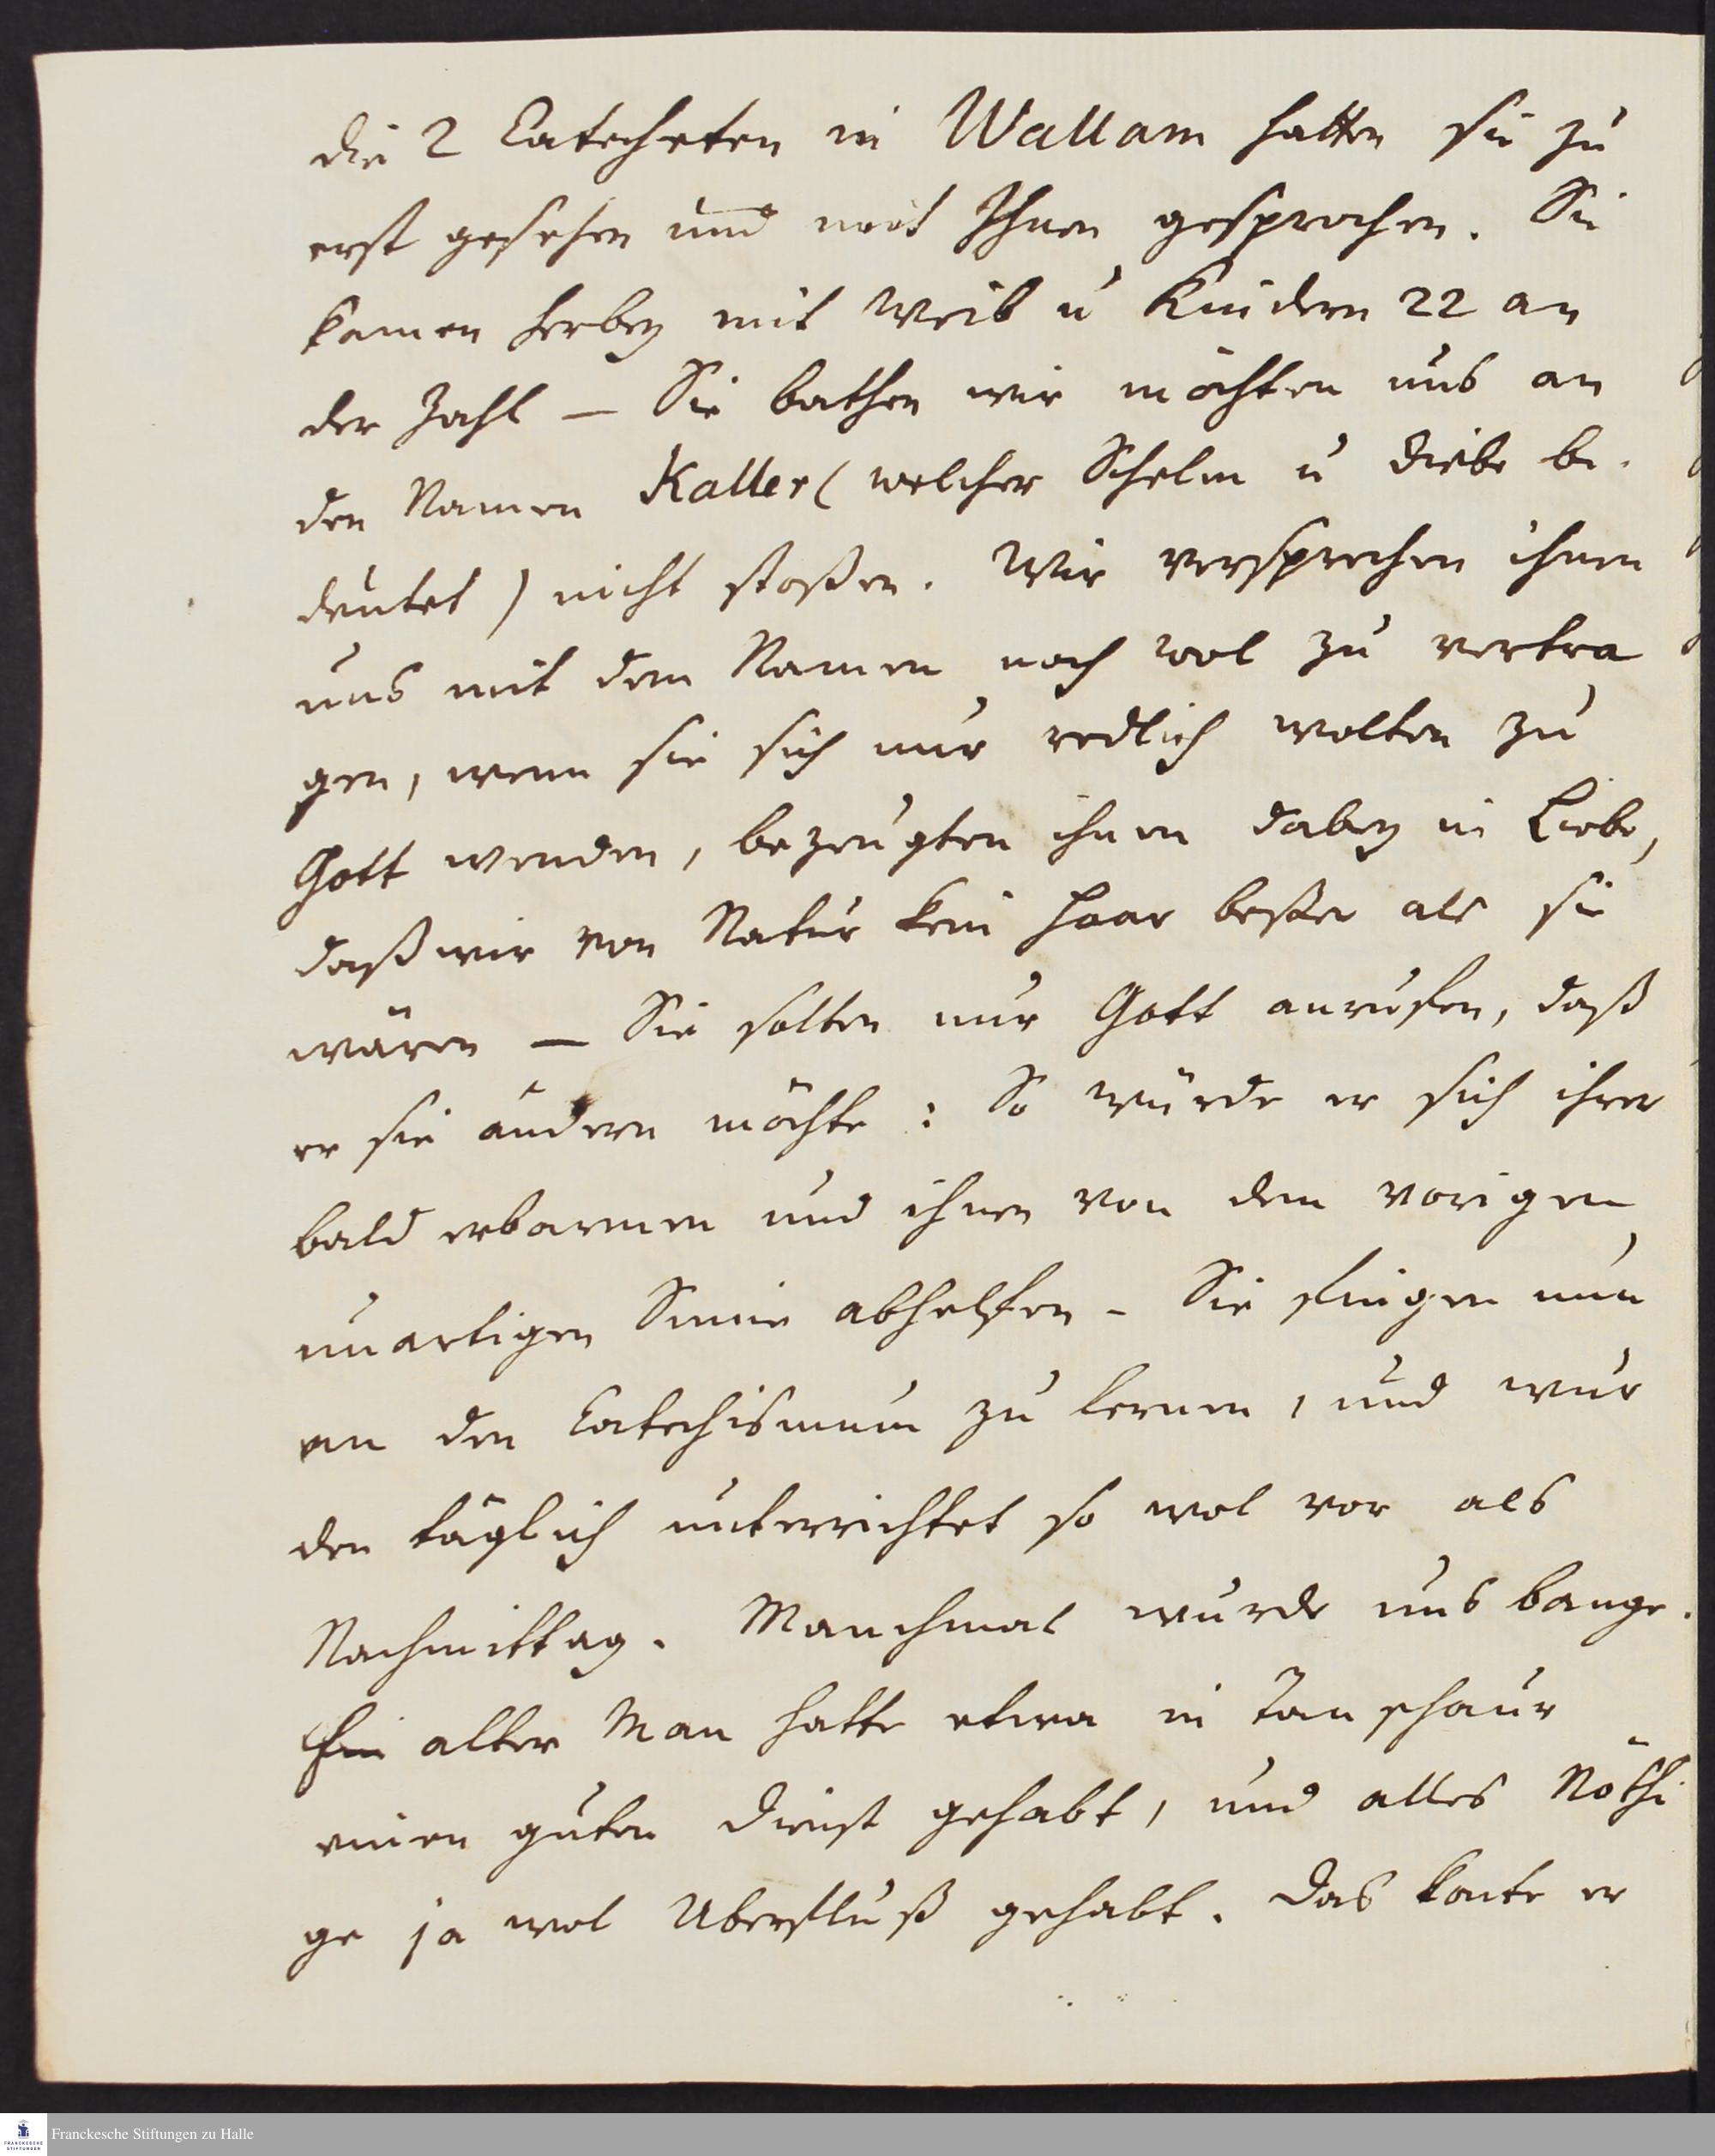 die 2 Catecheten in Wallam hatten sie zu
erst gesehen und mit Ihnen gesprochen. Sie
kamen herbey mit Weib u Kindern 22 an
der Zahl – Sie bathen wir möchten uns an
den Namen Kaller ( welcher Schelm u Diebe be-
deutet ) nicht stoßen. Wir versprechen ihnen
uns mit dem Namen noch wol zu vertra
gen, wenn sie sich nur redlich wolten zu
Gott wenden, bezeugten ihnen dabey in Liebe,
daß wir von Natur kein Haar beßer als sie
wären – Sie solten nur Gott anrufen, daß
er sie ändern möchte : So würde er sich ihrer
bald erbarmen und ihnen von dem vorigen
unartigen Sinne abhelfen – Sie fingen nun
an den Catechismum zu lernen, und wur
den täglich unterrichtet so wol vor als
Nachmittag. Manchmal wurde uns bange.
Ein alter Man hatte etwa in Tanschaur
einen guten Dienst gehabt, und alles Nöthi
ge ja wol Uberfluß gehabt. Das konte er
FRANCKESCHE STIFTUNGEN
Franckesche Stiftungen zu Halle